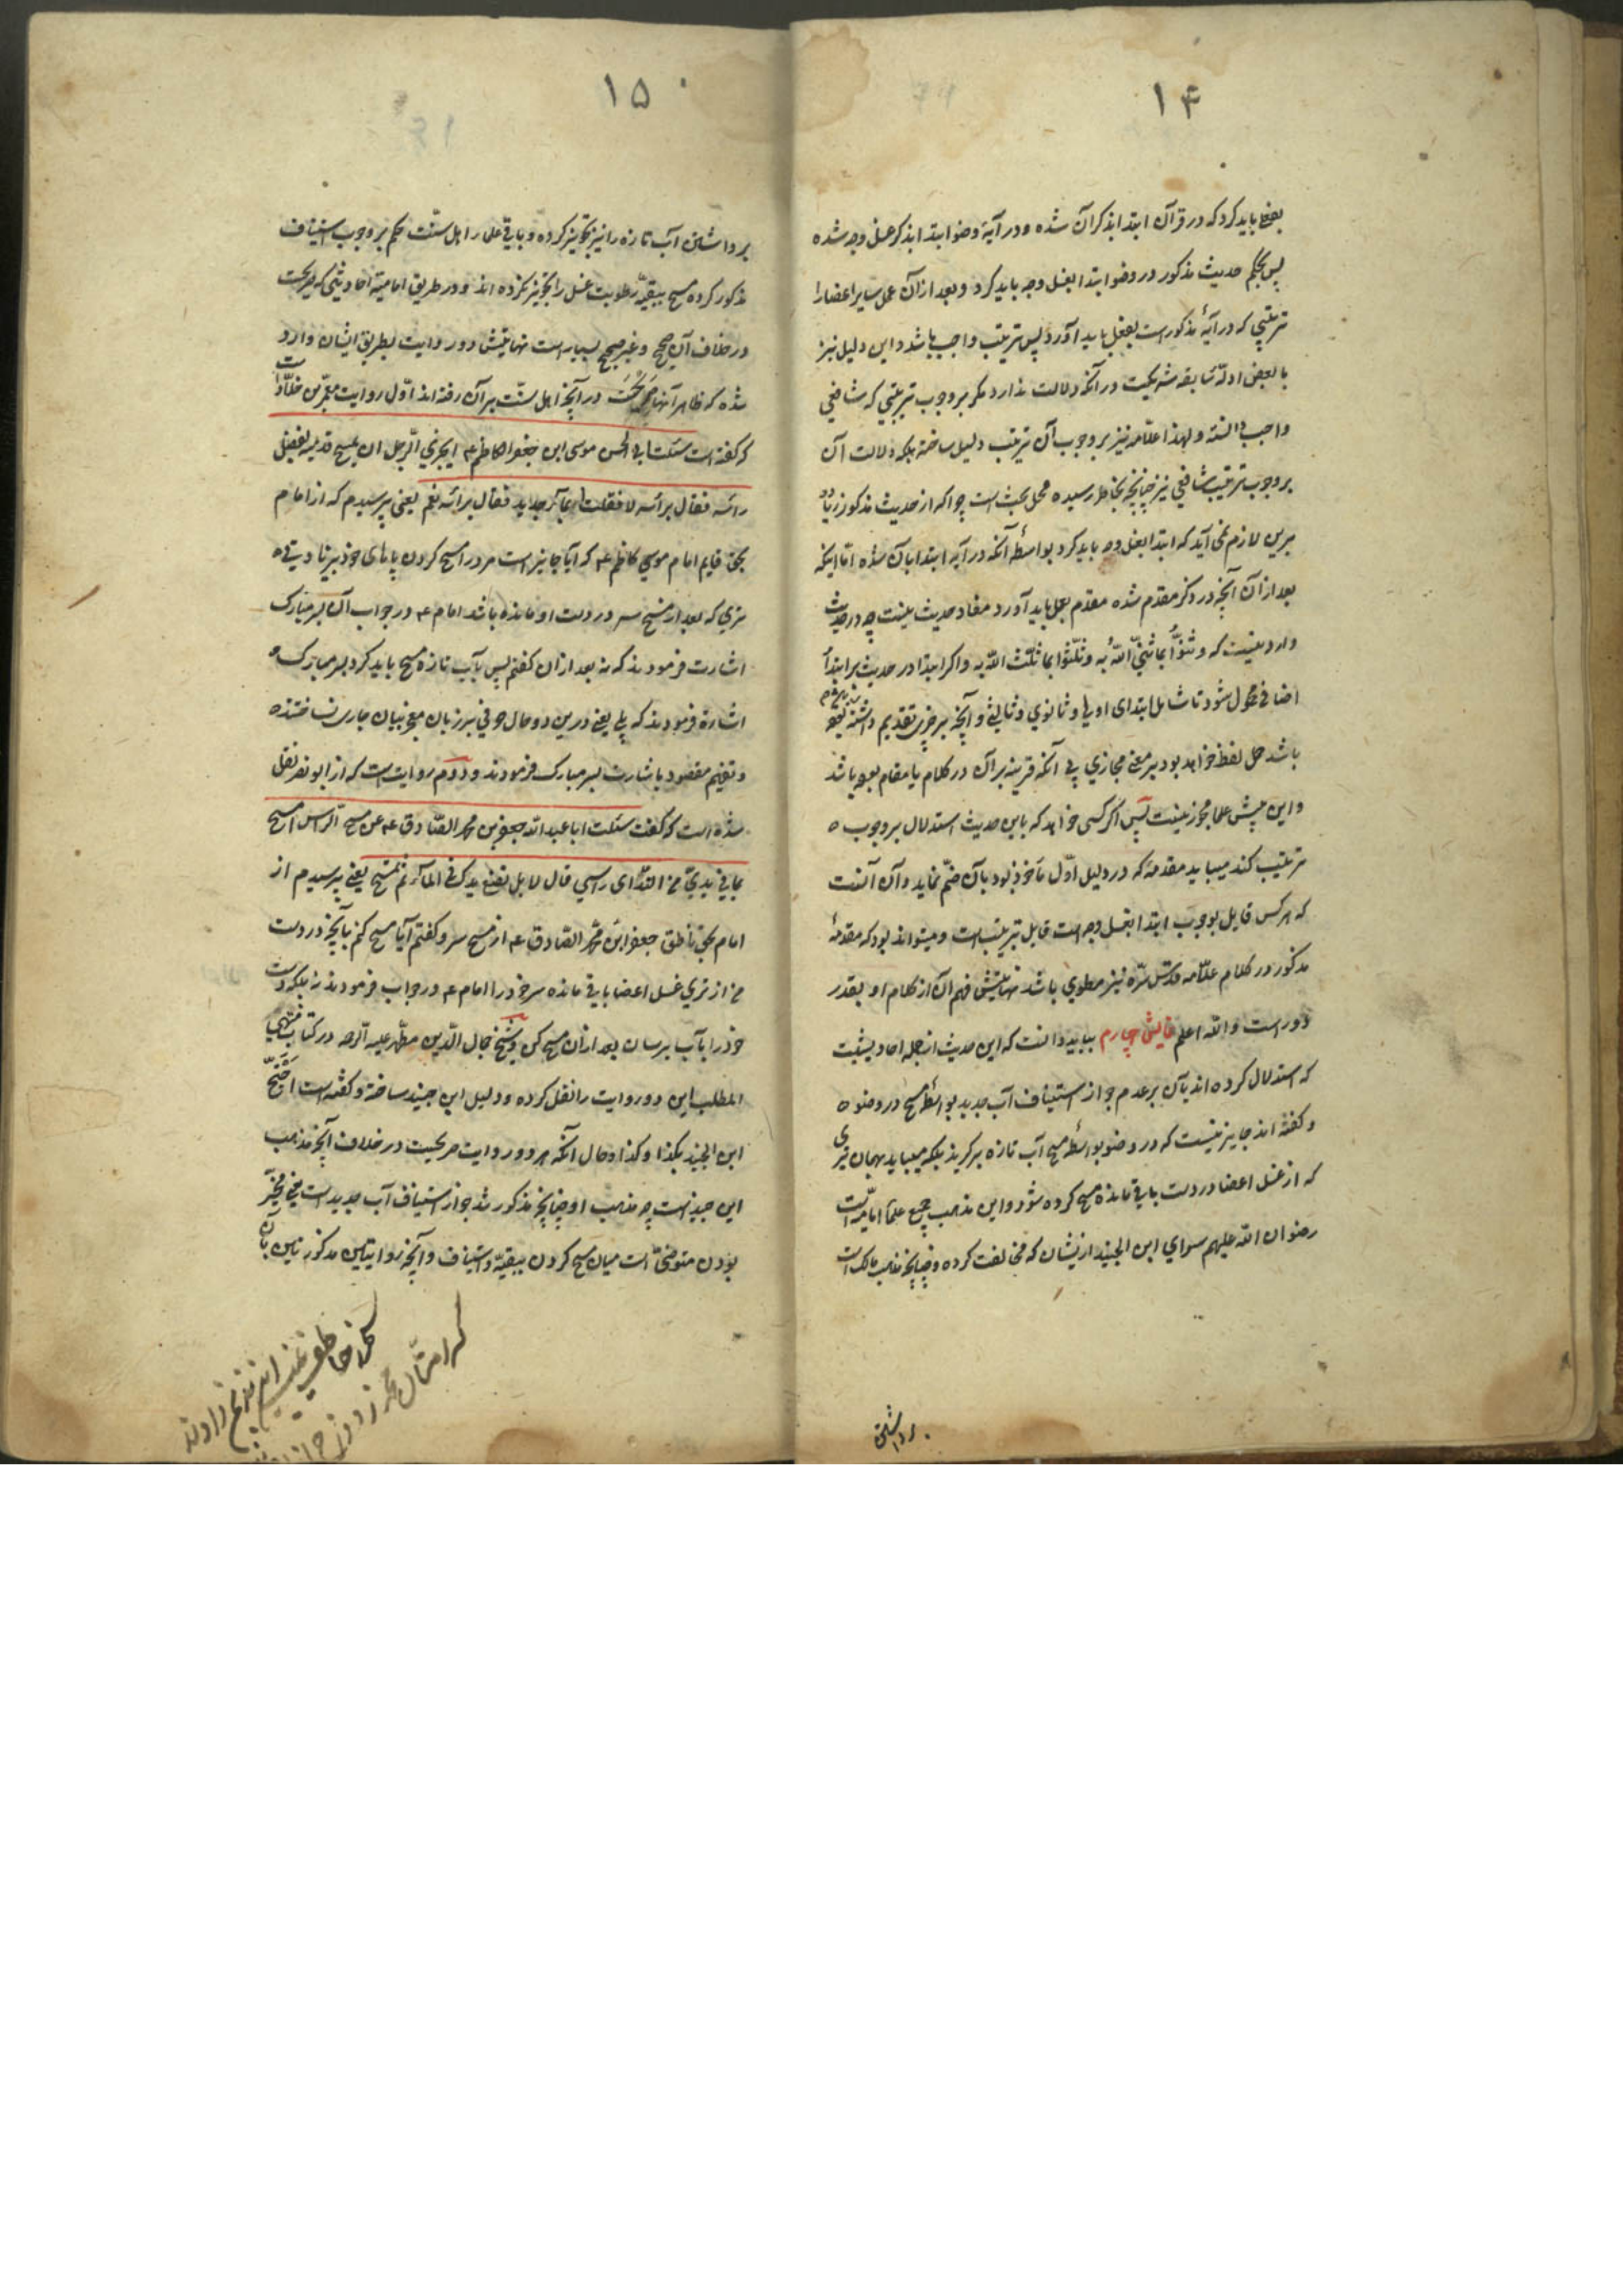 ۱۴
بفعل باید کرد که در قرآن ابتدا بذکر آن شده و در آیهٔ وضو ابتدا بذکر غسل وجه شده
پس بحکم حدیث مذکور در وضو ابتدا بغسل وجه باید کرد و بعد از آن غسل سایر اعضا را
ترتیبی که در آیهٔ مذکور است بفعل باید آورد پس ترتیب واجب باشد و این دلیل نیز
با بعض ادلّهٔ سابقه شریکست در آنکه دلالت ندارد مگر بر وجوب ترتیبی که شافعی
واجب دانسته و لهذا علّامه نیز بر وجوب آن ترتیب دلیل ساخته بلکه دلالت آن
بر وجوب ترتیب شافعی نیز چنانچه بخاطر رسیده محل بحث است چرا که از حدیث مذکور زیاده
برین لازم نمی آید که ابتدا بغسل وجه باید کرد بواسطهٔ آنکه در آیه ابتدا بآن شده اما اینکه
بعد از آن آنچه در ذکر مقدم شده مقدم بعمل باید آورد مفاد حدیث نیست چه در حدیث
وارد نیست که و ثنّوا بما ثنّی اللّه به و ثلّثوا بما ثلّث اللّه به و اگر ابتدا در حدیث بر ابتداء
اضافی محمول شود تا شامل ابتدای اولی و ثانوی و ثالثی و آنچه بر چیزی تقدیم داشته
باشد حمل لفظ خواهد بود بر معنی مجازی بی آنکه قرینه بر آن در کلام یا مقام بوده باشد
و این پیش علما مجوز نیست پس اگر کسی خواهد که باین حدیث استدلال بر وجوب
ترتیب کند میباید مقدمهٔ که در دلیل اوّل مأخوذ بود بآن ضمّ نماید و آن آنست
که هر کس قایل بوجوب ابتدا بغسل وجه است قایل بترتیب است و میتواند بود که مقدمهٔ
مذکور در کلام علّامه قدّس سرّه نیز مطوی باشد نهایتش فهم آن از کلام او بقدر
دور است و اللّه اعلم چهارم بباید دانست که این حدیث از جمله احادیثیست
که استدلال کرده اند بآن بر عدم جواز استیناف آب جدید بواسطهٔ مسح در وضو
و گفته اند جایز نیست که در وضو بواسطهٔ مسح آب تازه برگیرند بلکه میباید بهمان تری
که از غسل اعضا در دست باقی مانده مسح کرده شود و این مذهب جمیع علماء امامیّه است
رضوان اللّه علیهم سوای ابن الجنید از یشان که مخالفت کرده و چنانچه مذهب مالک است
برداشتن
۱۵
برداشتن آب تازه را نیز تجویز کرده و باقی علماء اهل سنّت حکم بر وجوب استیناف
مذکور کرده مسح ببقیّهٔ رطوبت غسل را تجویز نکرده اند و در طریق امامیّه احادیثی که صریحست
در خلاف آن صحیح و غیر صحیح بسیار است نهایتش دو روایت بطریق ایشان وارد
شده که ظاهر آنها صریحست در آنچه اهل سنّت بر آن رفته اند اوّل روایت معمّر بن خلّاد است
که گفته است سئلت ابی الحسن موسی ابن جعفر الکاظم ع ایجزی الرّجل ان یمسح قدمیه بفضل
رأسه فقال برأسه لا فقلت ابمآء جدید فقال برأسه نعم یعنی پرسیدم که از امام
بحق قایم امام موسی کاظم ع که آیا جایز است مرد را مسح کردن پاهای خود بزیادتی
تری که بعد از مسح سر در دست او مانده باشد امام ع در جواب آن بسر مبارک
اشارت فرمودند که نه بعد از آن گفتم پس بآب تازه مسح باید کرد بسر مبارک
اشاره فرمودند که بلی یعنی درین دو حال حرفی بر زبان معجز بیان جاری نساختند
و تفهیم مقصود باشارت بسر مبارک فرمودند و دوم روایت است که از ابو بصیر نقل
شده است که گفت سئلت ابا عبد اللّه جعفر بن محمد الصّادق ع عن مسح الرّأس امسح
بما فی یدیّ من النّدای رأسی قال لا بل تضع یدک فی المآء ثم تمسح یعنی پرسیدم از
امام بحق ناطق جعفر ابن محمد الصّادق ع از مسح سر و گفتم آیا مسح کنم بآنچه در دست
من از تری غسل اعضا باقی مانده سر خود را امام ع در جواب فرمودند نه بلکه دست
خود را بآب برسان بعد از آن مسح کن و شیخ جمال الدّین مطهّر علیه الرحمه در کتاب منتهی
المطلب این دو روایت را نقل کرده و دلیل ابن جنید ساخته و گفته است احتجّ
ابن الجنید بکذا و کذا و حال آنکه هر دو روایت صریحست در خلاف آنچه مذهب
ابن جنید است چه مذهب او چنانچه مذکور شد جواز استیناف آب جدید است یعنی مخیّر
بودن متوضّی است میان مسح کردن ببقیّه و استیناف و آنچه روایتین مذکورتین بآن